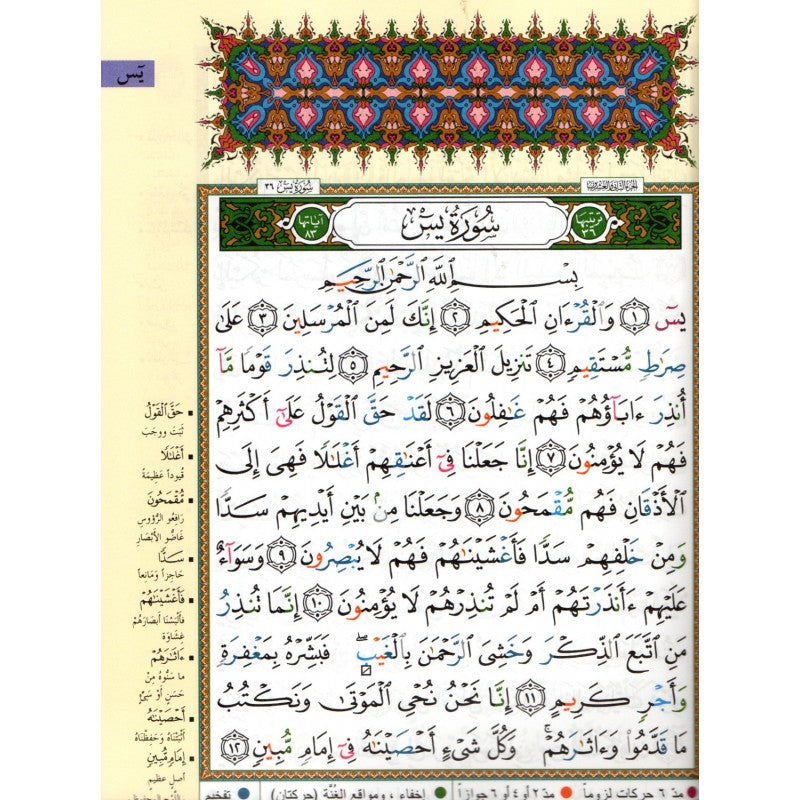 يسٓ
سُورَةُ يسٓ ٣٦
الجزء الثاني والعشرون
آياتها ٨٣
سُورَةُ يسٓ
ترتيبها ٣٦
بِسْمِ ٱللَّهِ ٱلرَّحْمَٰنِ ٱلرَّحِيمِ
يسٓ ١ وَٱلْقُرْءَانِ ٱلْحَكِيمِ ٢ إِنَّكَ لَمِنَ ٱلْمُرْسَلِينَ ٣ عَلَىٰ
صِرَٰطٍ مُّسْتَقِيمٍ ٤ تَنزِيلَ ٱلْعَزِيزِ ٱلرَّحِيمِ ٥ لِتُنذِرَ قَوْمًا مَّآ
أُنذِرَ ءَابَآؤُهُمْ فَهُمْ غَٰفِلُونَ ٦ لَقَدْ حَقَّ ٱلْقَوْلُ عَلَىٰٓ أَكْثَرِهِمْ
فَهُمْ لَا يُؤْمِنُونَ ٧ إِنَّا جَعَلْنَا فِىٓ أَعْنَٰقِهِمْ أَغْلَٰلًا فَهِىَ إِلَى
ٱلْأَذْقَانِ فَهُم مُّقْمَحُونَ ٨ وَجَعَلْنَا مِنۢ بَيْنِ أَيْدِيهِمْ سَدًّا
وَمِنْ خَلْفِهِمْ سَدًّا فَأَغْشَيْنَٰهُمْ فَهُمْ لَا يُبْصِرُونَ ٩ وَسَوَآءٌ
عَلَيْهِمْ ءَأَنذَرْتَهُمْ أَمْ لَمْ تُنذِرْهُمْ لَا يُؤْمِنُونَ ١٠ إِنَّمَا تُنذِرُ
مَنِ ٱتَّبَعَ ٱلذِّكْرَ وَخَشِىَ ٱلرَّحْمَٰنَ بِٱلْغَيْبِ ۖ فَبَشِّرْهُ بِمَغْفِرَةٍ
وَأَجْرٍ كَرِيمٍ ١١ إِنَّا نَحْنُ نُحْىِ ٱلْمَوْتَىٰ وَنَكْتُبُ
مَا قَدَّمُوا۟ وَءَاثَٰرَهُمْ ۚ وَكُلَّ شَىْءٍ أَحْصَيْنَٰهُ فِىٓ إِمَامٍ مُّبِينٍ ١٢
حَقَّ ٱلْقَوْلُ
ثَبَتَ ووجَبَ
أَغْلَٰلًا
قُيوداً عَظِيمَةً
مُّقْمَحُونَ
رَافِعُو الرُّؤوسِ
غَاضُّو الأَبْصَارِ
سَدًّا
حَاجِزاً وَمَانعاً
فَأَغْشَيْنَٰهُمْ
فألبَسْنَا أبصارَهُمْ
غِشَاوَةً
ءَاثَٰرَهُمْ
ما سَنُّوهُ مِنْ
حَسَنٍ أَوْ سَيِّئٍ
أَحْصَيْنَٰهُ
أَثْبَتْنَاهُ وَحَفِظْنَاهُ
إِمَامٍ مُّبِينٍ
أصلٍ عظيمٍ
مدّ ٦ حركات لزوماً مدّ ٢ أو ٤ أو ٦ جوازاً إخفاء، ومواقع الغُنَّة (حركتان) تفخيم